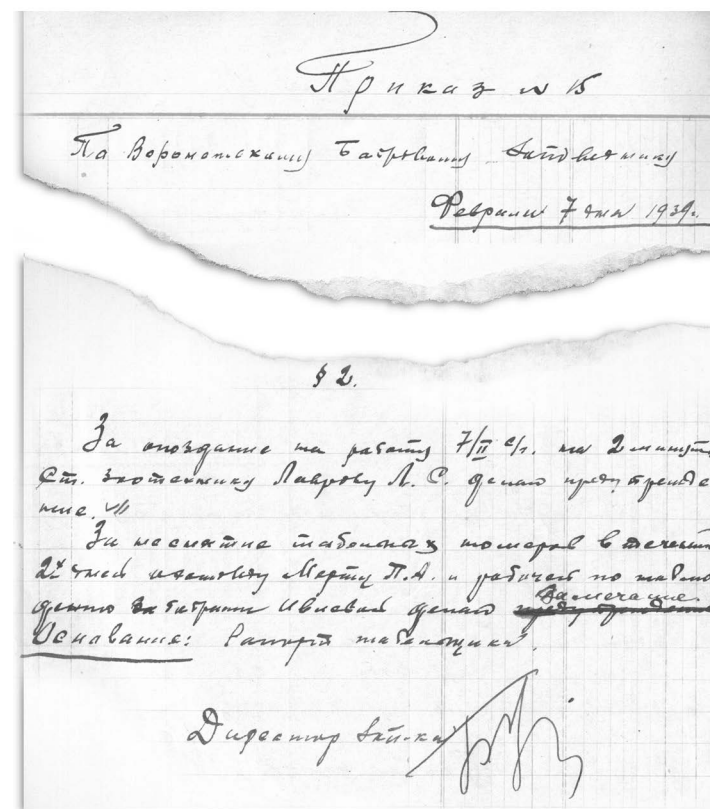 Приказ № 15
По Воронежскому Бобровому Заповеднику
Февраля 7 дня 1939г.
§ 2.
За опоздание на работу 7/II с/г. на 2 минуты
Ст. зоотехнику Лаврову Л. С. делаю предупрежде
ние.
За неснятие табельных номеров в течении
2х дней Мерту П.А. и рабочей по наблю
дению за бобрами делаю замечание
Основание: Рапорт табельщика.
Директор Зап-ка